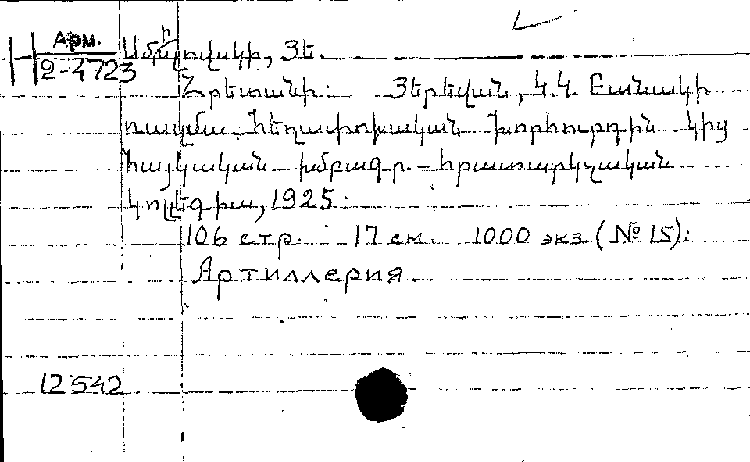 Арм.
2-4723
Յե.
Հրետանի: Յերեվան, Կ.Կ. Բանակի
ռազմա-հեղափոխական խորհուրդին կից
հայկական խմբագր.-հրատարակչական
կոլլեգիա, 1925:
106 стр. 17 см. 1000 экз (№ 15):
Артиллерия.
12542